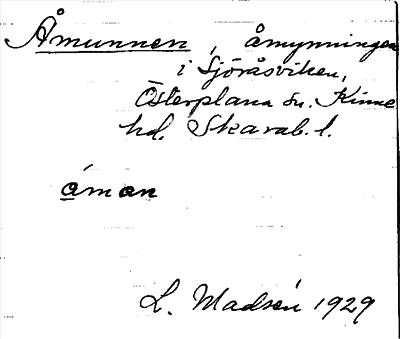 Åmunnen, åmynningen
i Sjöråsviken,
Österplana sn. Kinne
hd. Skarab. l.
åmon
L. Madsén 1929